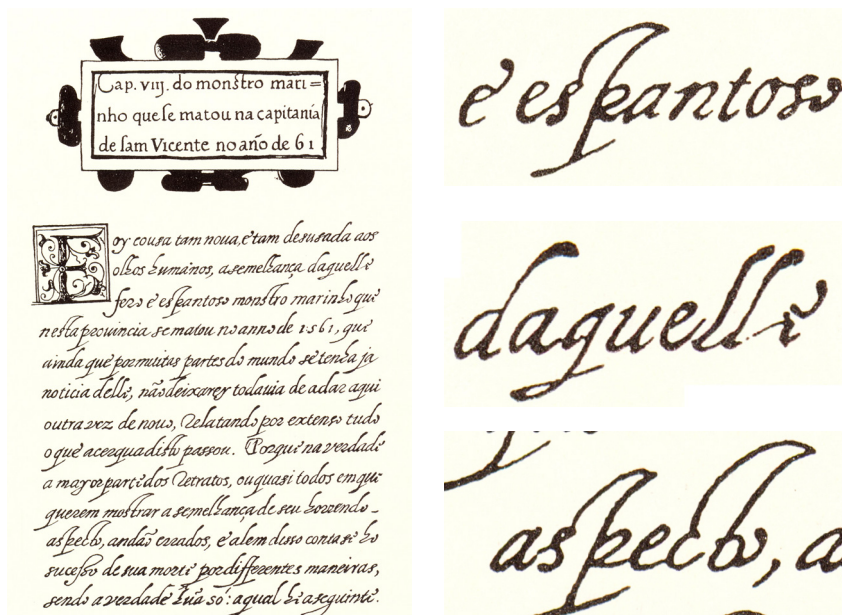 Cap. viij. do monstro mari=
nho que se matou na capitanía
de sam Vicente no año de 61
Foy cousa tam noua, e tam desusada aos
olhos humanos, a semelhança daquelle
fero e espantoso monstro marinho que
nesta prouincia se matou no anno de 1561, que
ainda que por muitas partes do mundo se tenha ja
noticia delle, não deixarey todauia de a dar aqui
outra vez de nouo, Relatando por extenso tudo
o que acerqua disto passou. Porque na verdade
a mayor parte dos Retratos, ou quasi todos em que
querem mostrar a semelhança de seu horrendo
aspecto, andão errados, e alem disso contase ho
sucesso de sua morte por differentes maneiras,
sendo a verdade hũa só: a qual he a seguinte.
e espantoso
daquelle
aspecto, a